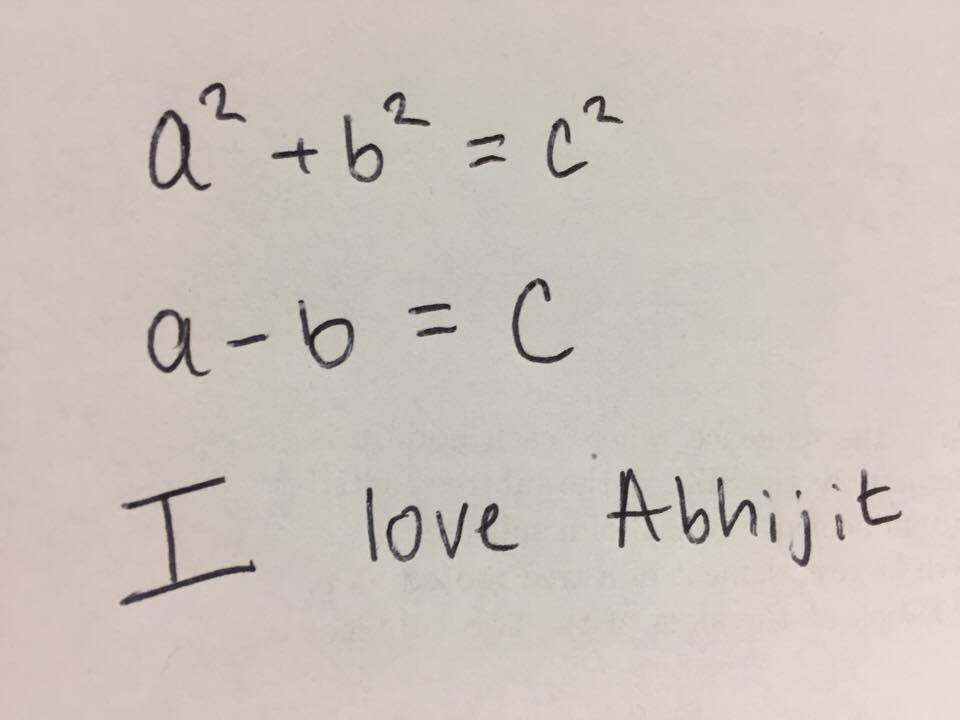 a² + b² = c²
a - b = c
I love Abhijit